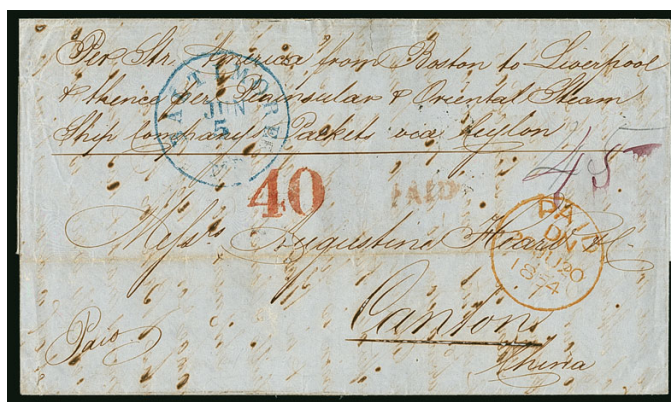 Per Str. America from Boston to Liverpool
& thence per Peninsular & Oriental Steam
Ship Company's Packets via Ceylon
BALTIMORE
JUN
5
40
PAID
45
Messrs. Augustine Heard & Co
PAID
20
1854
Canton
China
Paid